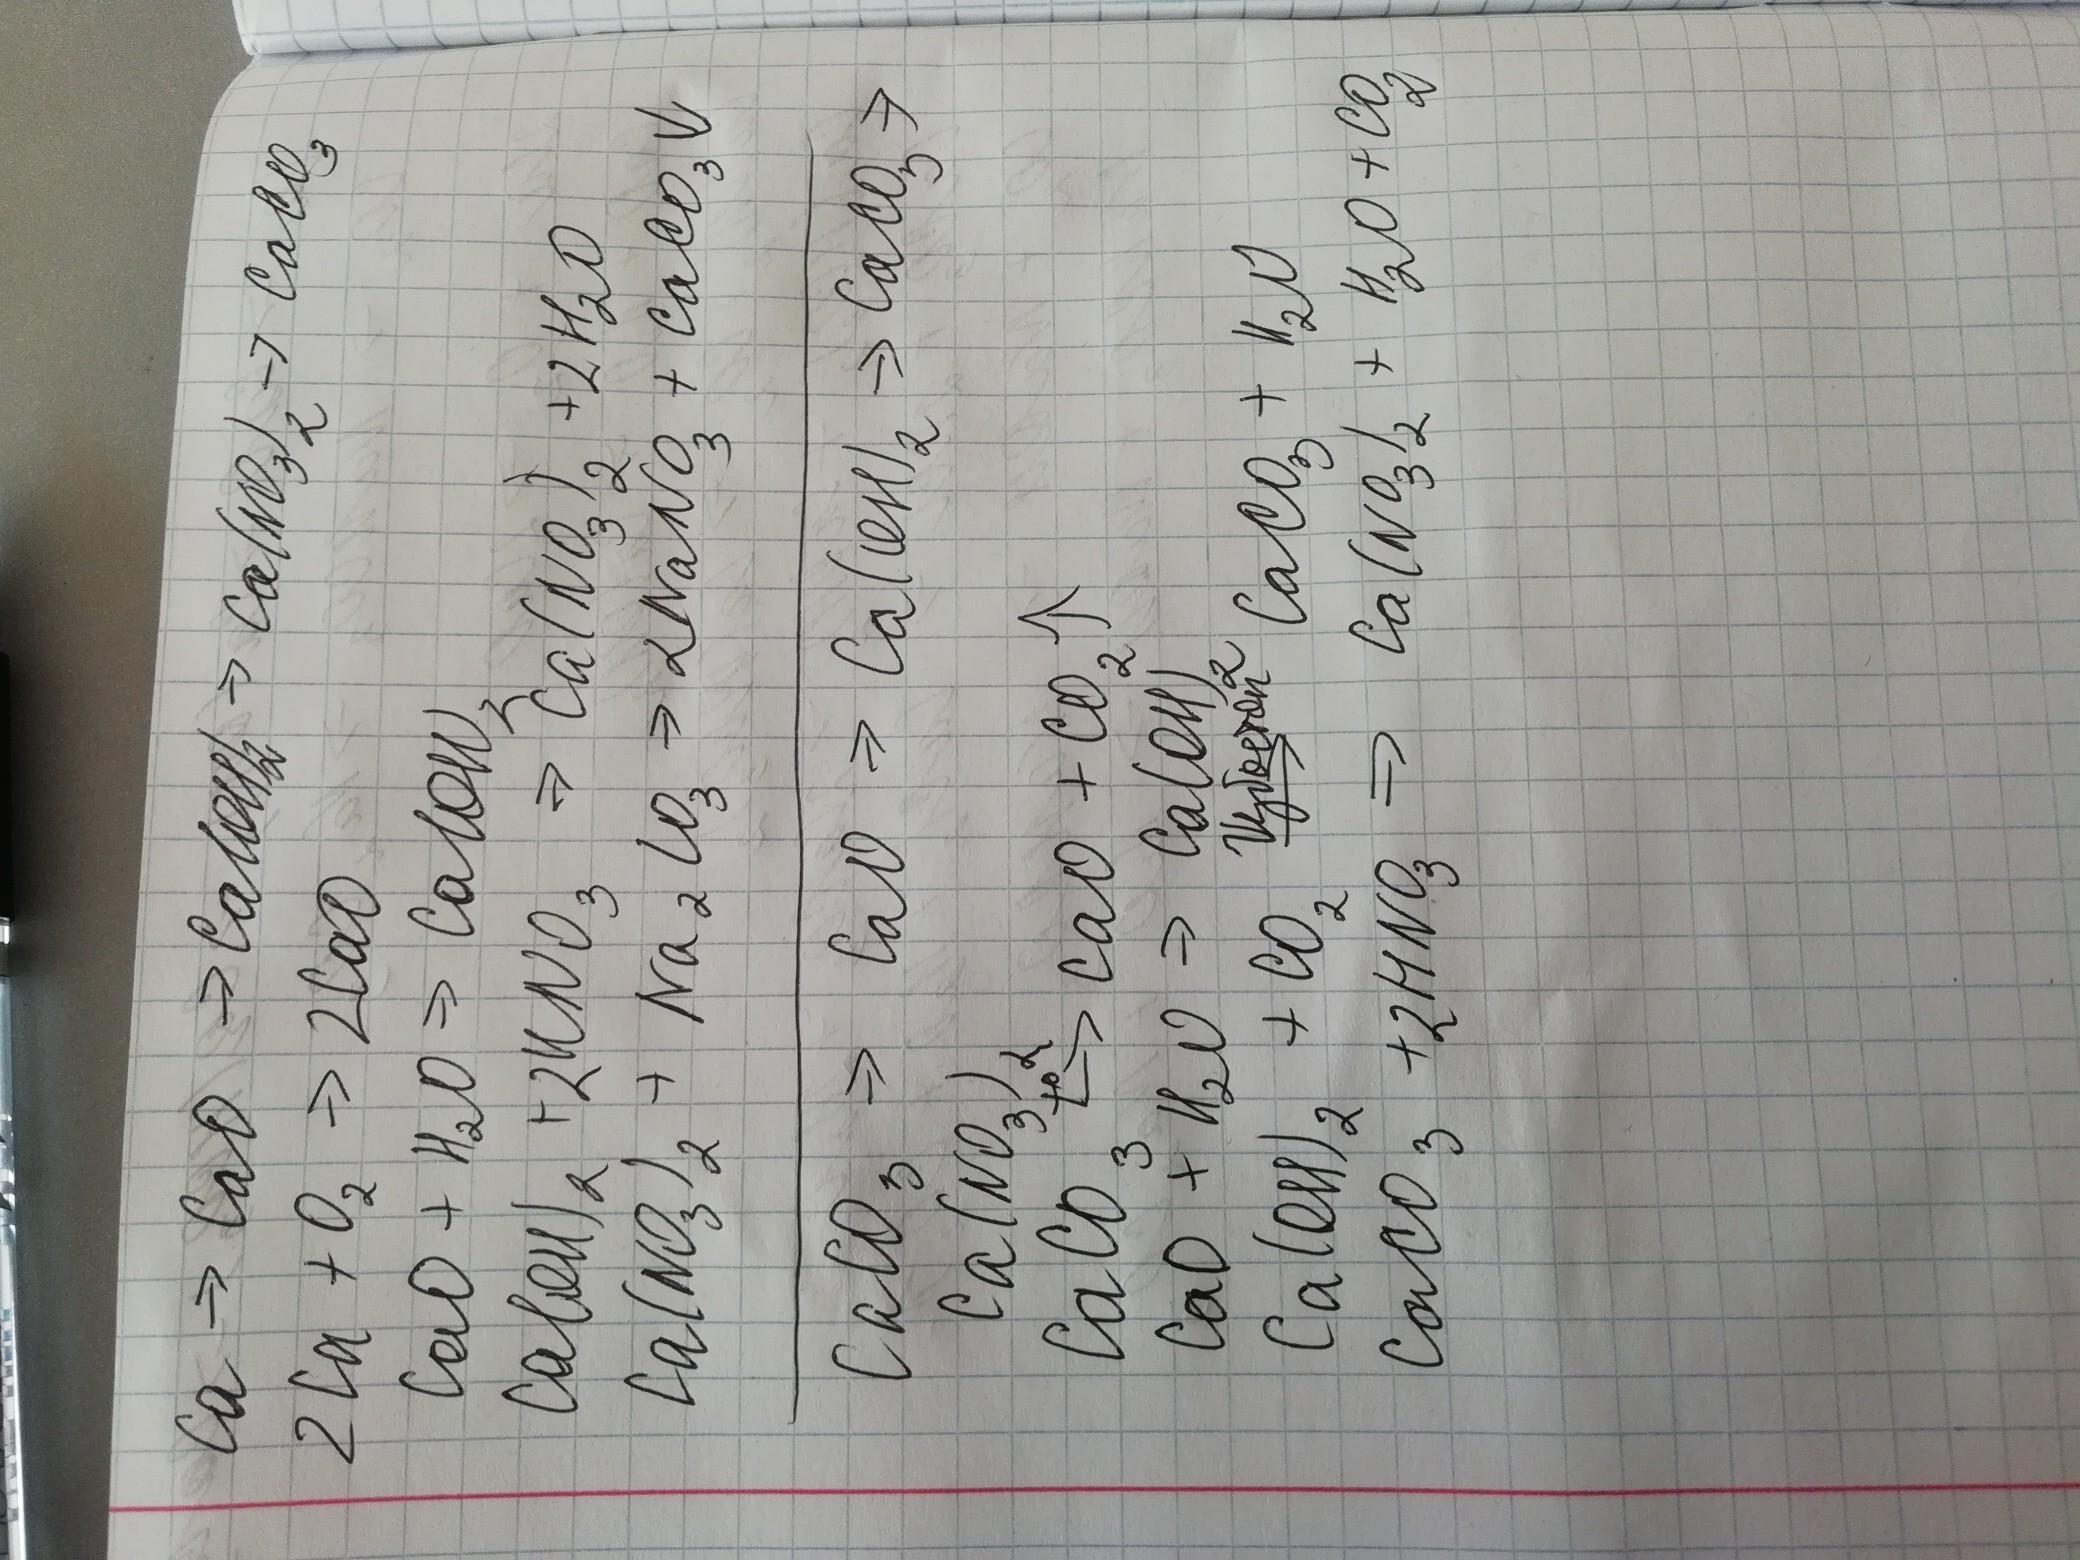 Ca → CaO → Ca(OH)₂ → Ca(NO₃)₂ → CaCO₃
2Ca + O₂ → 2CaO
CaO + H₂O → Ca(OH)₂
Ca(OH)₂ + 2HNO₃ → Ca(NO₃)₂ + 2H₂O
Ca(NO₃)₂ + Na₂CO₃ → 2NaNO₃ + CaCO₃↓
CaCO₃ → CaO → Ca(OH)₂ → CaCO₃ →
Ca(NO₃)₂
CaCO₃ t° → CaO + CO₂↑
CaO + H₂O → Ca(OH)₂
Ca(OH)₂ + CO₂ избыток → CaCO₃ + H₂O
CaCO₃ + 2HNO₃ → Ca(NO₃)₂ + H₂O + CO₂